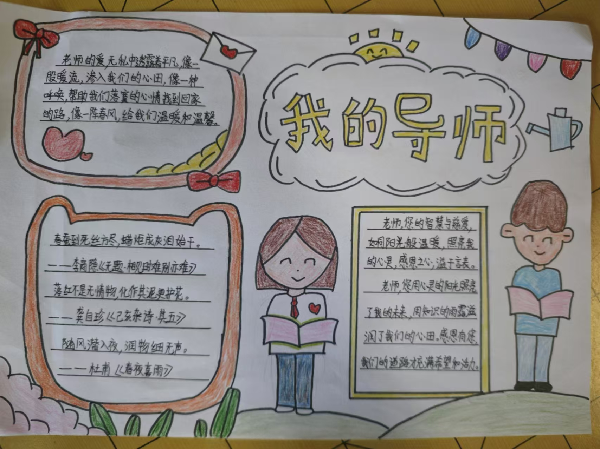 我的导师
老师的爱,无私中透露着平凡,像一
股暖流,渗入我们的心田,像一种
呼唤,帮助我们落寞的心情找到回家
的路,像一阵春风,给我们温暖和温馨。
春蚕到死丝方尽,蜡炬成灰泪始干。
——李商隐《无题·相见时难别亦难》
落红不是无情物,化作春泥更护花。
——龚自珍《己亥杂诗·其五》
随风潜入夜,润物细无声。
——杜甫《春夜喜雨》
老师,您的智慧与慈爱,
如同阳光般温暖,照亮我
的心灵,感恩之心,溢于言表。
老师,您用心灵的阳光照亮
了我的未来,用知识的雨露滋
润了我们的心田,感恩有您,
我们的道路才充满希望和活力。